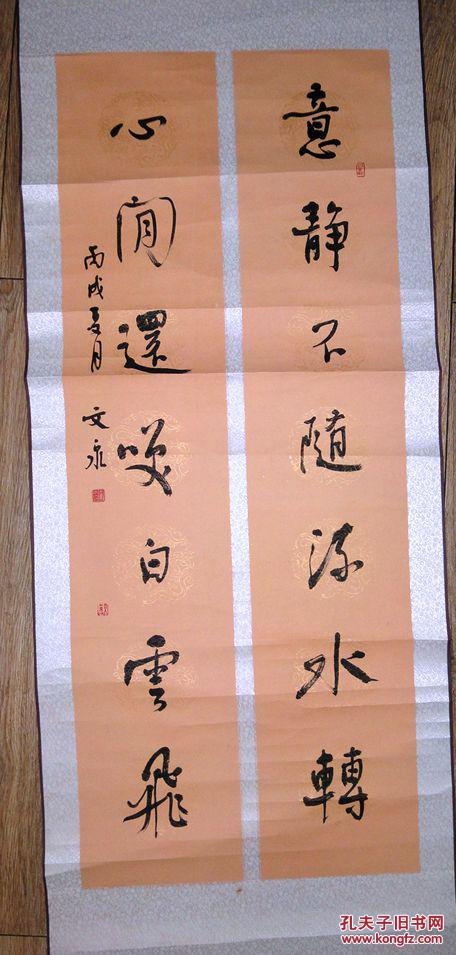 意静不随流水轉
心閒還咲白雲飛
丙戌夏月
文泉
孔夫子旧书网
www.kongfz.com